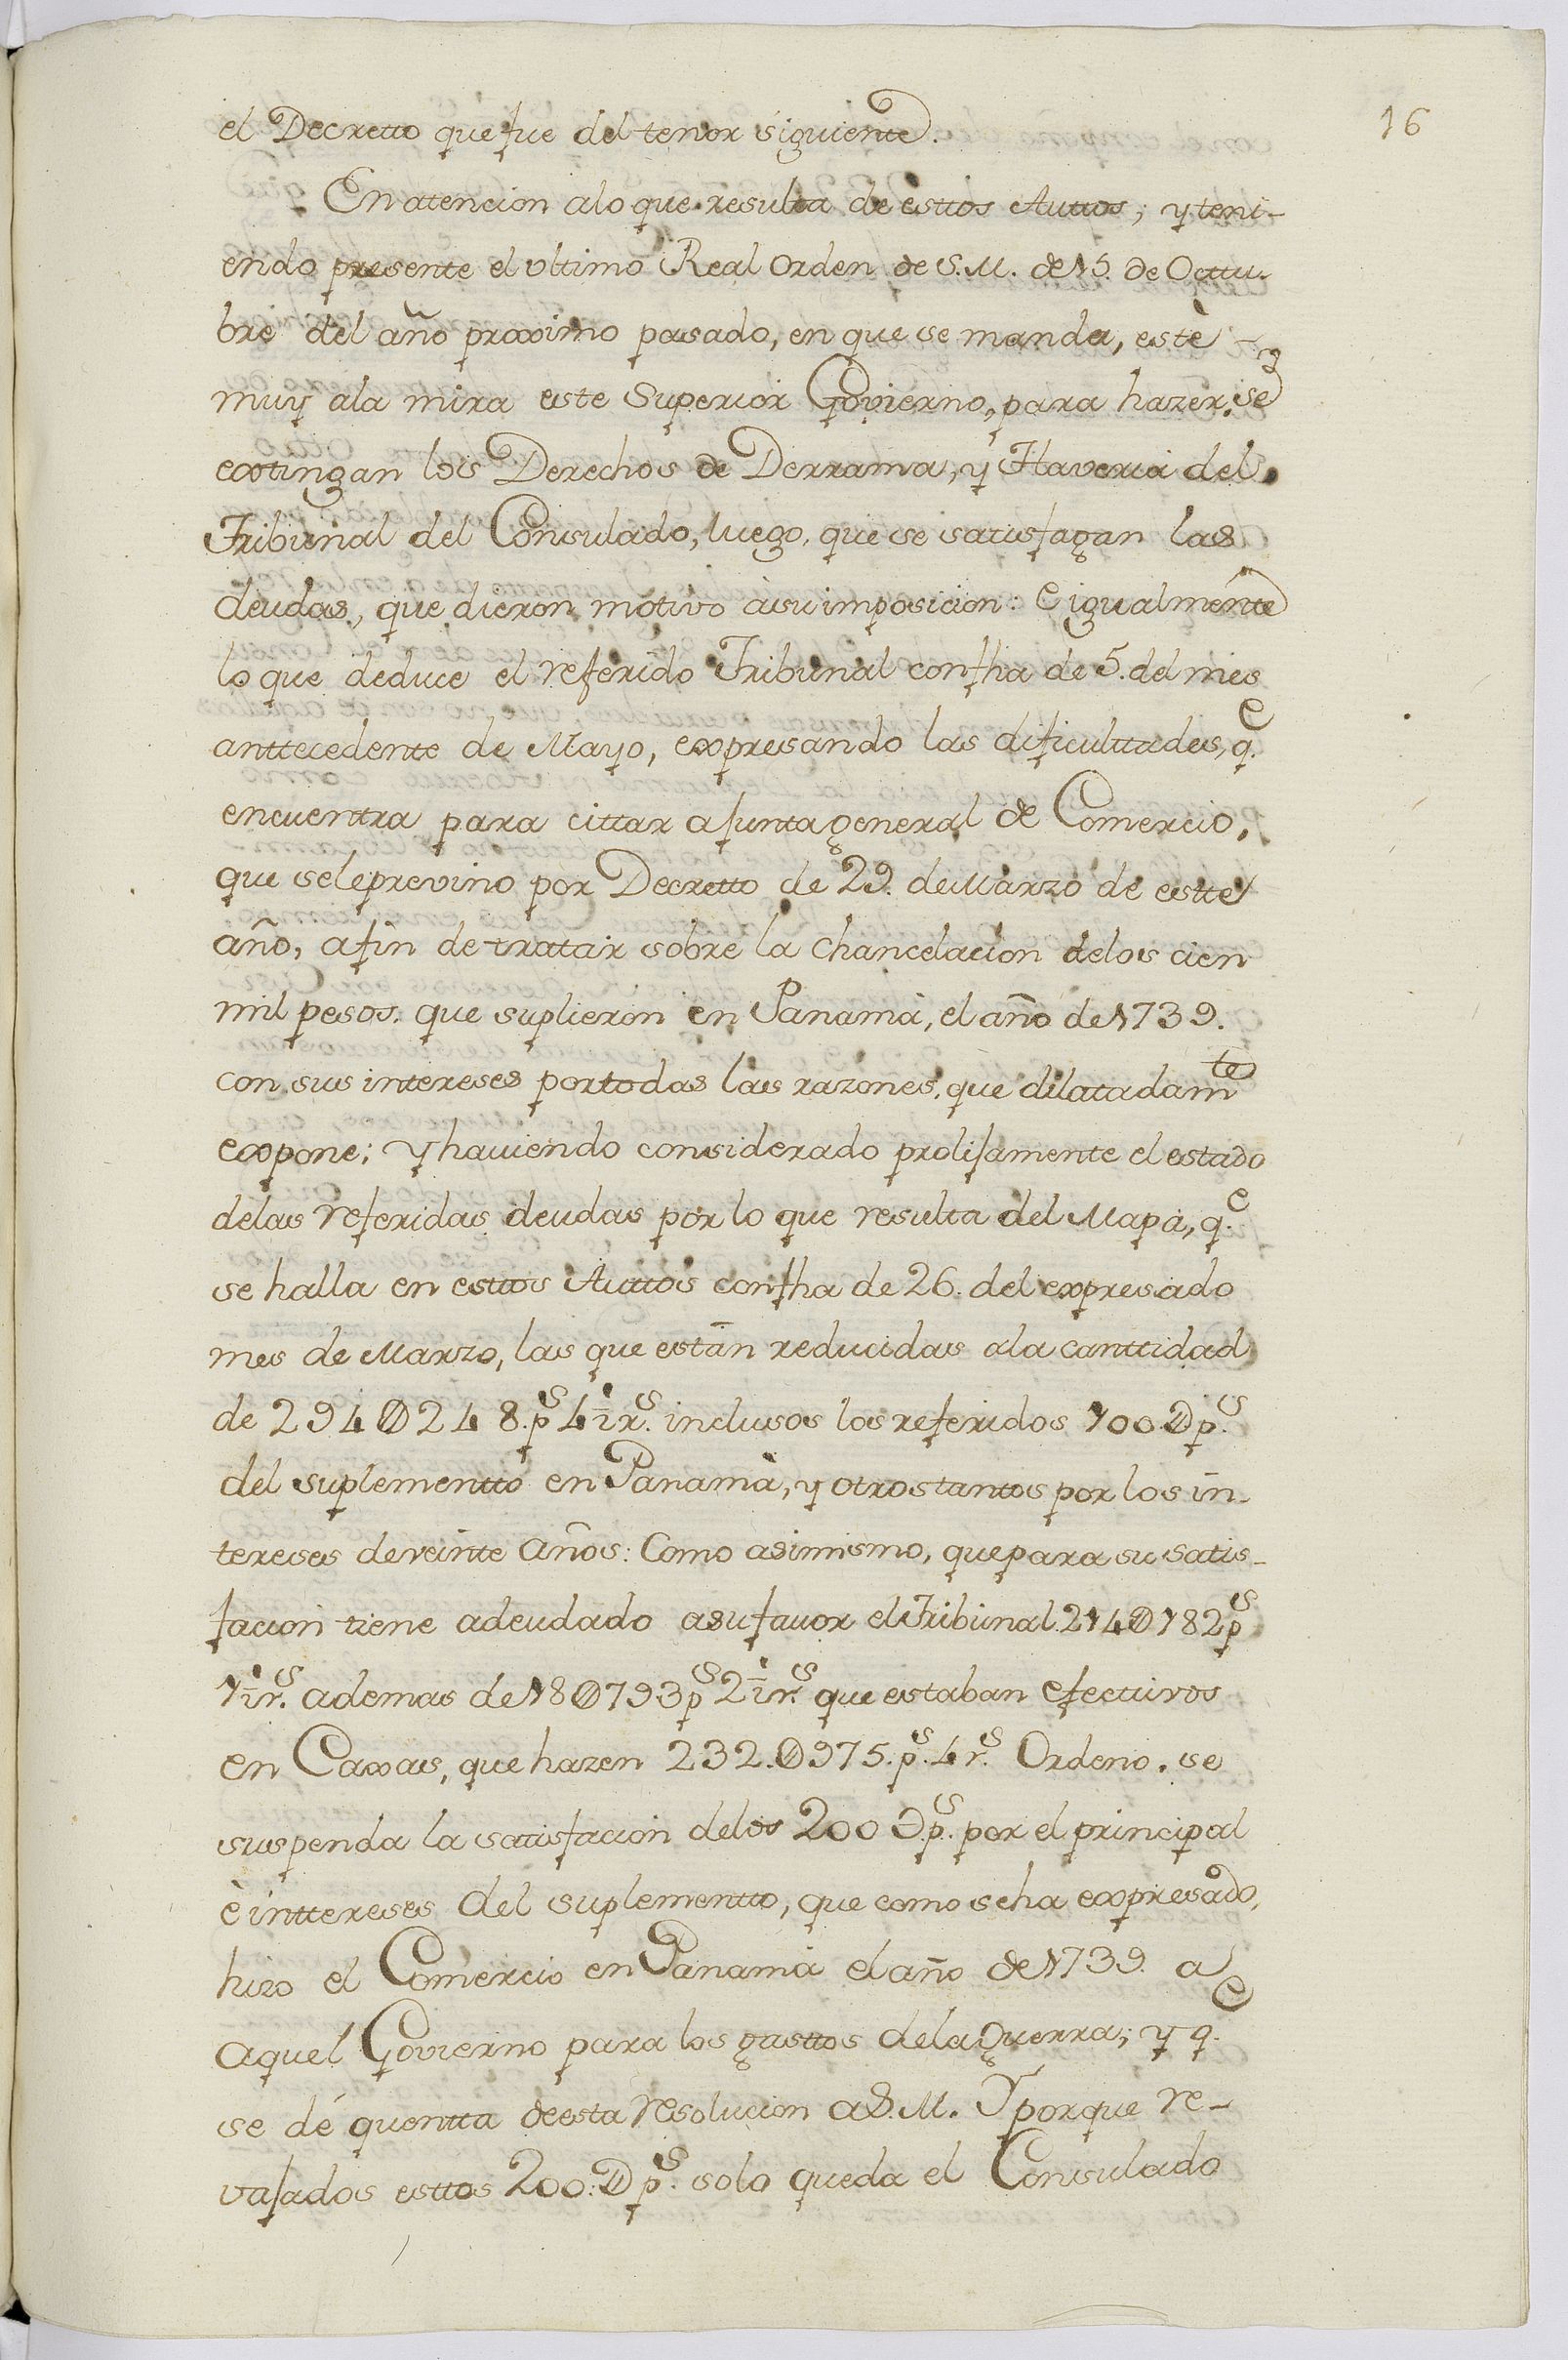 16
el Decretto que fue del tenor siguiente.
En atencion alo que resulta de esttos Auttos; y teni-
endo presente el vltimo Real Orden de S.M. de 15. de Octtu-
bre del año proximo pasado, en que se manda, estè
muy ala mira este Superior Govierno, para hazer, se
extingan los Derechos de Derrama, y Haveria del
Tribunal del Consulado, luego, que se satisfagan las
deudas, que dieron motivo àsu imposicion: e igualmente
lo que deduce el referido Tribunal con fha de 5. del mes
anttecedente de Mayo, expresando las dificulttades, q.e
encuentra para cittar aJunta general de Comercio,
que seleprevino por Decretto de 29. deMarzo de estte
año, afin de tratar sobre la chancelacion delos cien
mil pesos. que suplieron en Panamà, el año de 1739.
con sus intereses portodas las razones, que dilatadamte
expone; y haviendo considerado prolijamente el estado
delas referidas deudas por lo que resulta del Mapa, q.e
se halla en esttos Auttos con fha de 26. del expresado
mes de Marzo, las que estàn reducidas ala canttidad
de 294Ø248.ps 4½rs. inclusos los referidos 100.Ø ps.
del suplementto en Panamà, y otrostantos por los in-
tereses deveinte años: Como asimismo, quepara su satis-
facion tiene adeudado asufavor elTribunal. 214Ø182ps
1½rs. ademas de 18Ø793ps 2½rs. que estaban efecttivos
en Caxas, que hazen 232.Ø975.ps. 4 rs. Ordeno. se
suspenda la satisfacion delos 200Ø.ps. por el principal
è inttereses del suplementto, que como seha expresado,
hizo el Comercio en Panamà el año de 1739. a
aquel Govierno para los gasttos dela Guerra; y q.e
se dé quentta deesta resolucion aS.M. Y porque re-
vajados esttos 200:Ø ps. solo queda el Consulado